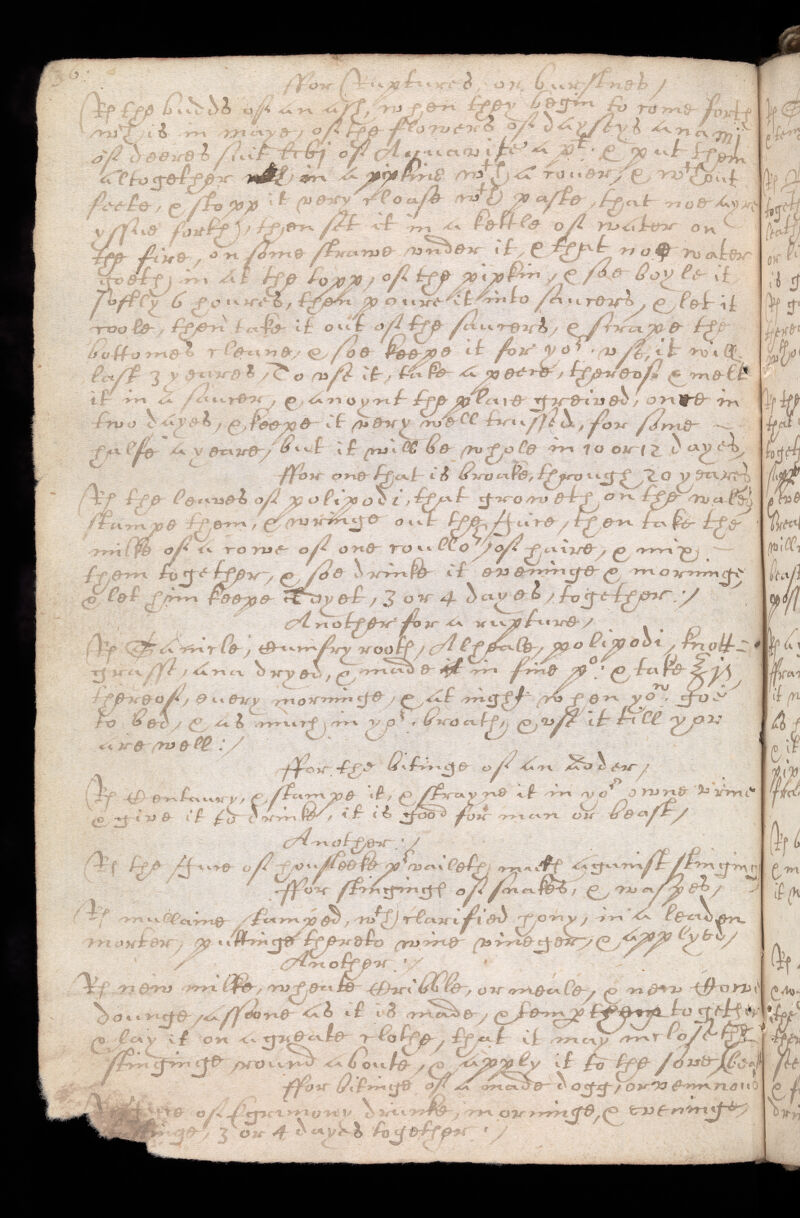 36:
ffor Ruptures, or burstnes /
Rx the budds of an ash, when they begin to come forth
wch is in maye, of the flowers of dayseys ana mj
of deeres suit of Aquavite a pt. & put them
altogether in a pipkine wth a couer, & wthout
feete, & stopp it very cloase wth paste, that noe ayre
yssue forth, then set it in a kettle of water on
the fire, on some strawe vnder it, & that noe water
goeth in at the topp, of the pipkin, & soe boyle it
softly 6 houres, then poure it into saucers, & let it
coole, then take it out of the saucers, & scrape the
bottomes cleane, & soe keepe it for yor. vse, it will
last 3 yeares, To vse it, take a peece, thereof & melt
it in a saucer, & anoynt the place greived, once in
two dayes, & keepe it very well trussed, for some
halfe a yeare, but it will be whole in 10 or 12 dayes,
ffor one that is broake, through 20 yeares
Rx the leaves of polipodi, that groweth on the wales
stampe them, & wringe out the Juice, then take the
milke of a cowe of one coullor, of haire, & mix
them together, & soe drinke it eveninge & morninge
& let him keepe dyet, 3 or 4 dayes, together : /
Another for a rupture /
Rx Sanicle, Cumfry rooth, Alheale, polipodi, knott=
grasse, ana dryed, & made it in fine po. & take ʒij,
thereof, every morninge, & at night when you. goe
to bed, & as much in yor. broath, & vse it till you
are well : /
ffor the bitinge of an Adder /
Rx Centaury, & stampe it, & strayne it in yor owne vrine
& give it to drinke, it is good for man or beast /
Another : /
Rx the Juice of housleeke pvaileth much against stinging
ffor stinginge of snakes, & waspes /
Rx mullaine stamped, wth clarified hony, in a leaden
morter, puttinge thereto wine vineger, & applyed /
Another : /
Rx new milke, wheate Cribble, or meale, & new Cowe
dounge, assoone as it is made, & temp them together
& lay it on a greate clothe, that it may inclose the
stinginge round aboute, & apply it to the sore
ffor bitinge of a made dogg, or vemnous
Juice of Egrimony drunke, morninge, & eveninge,
3 or 4 dayes together : /